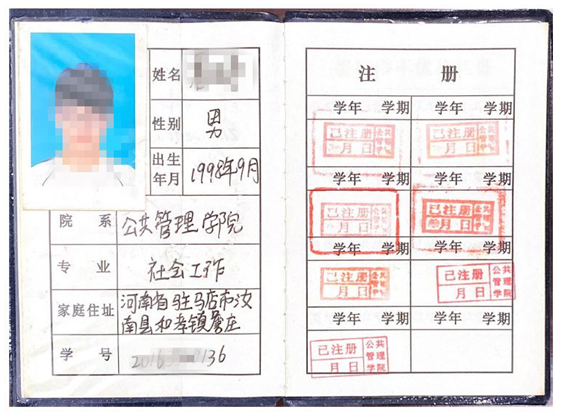 姓名
性别 男
出生年月 1998年9月
院系 公共管理学院
专业 社会工作
家庭住址 河南省驻马店市汝
南县和孝镇詹庄
学号 2016 136
注册
学年 学期 学年 学期
已注册 公共管理学院 月 日 已注册 公共管理学院 月 日
学年 学期 学年 学期
已注册 公共管理学院 月 日 已注册 公共管理学院 月 日
学年 学期 学年 学期
已注册 公共管理学院 月 日 已注册 公共管理学院 月 日
学年 学期 学年 学期
已注册 公共管理学院 月 日